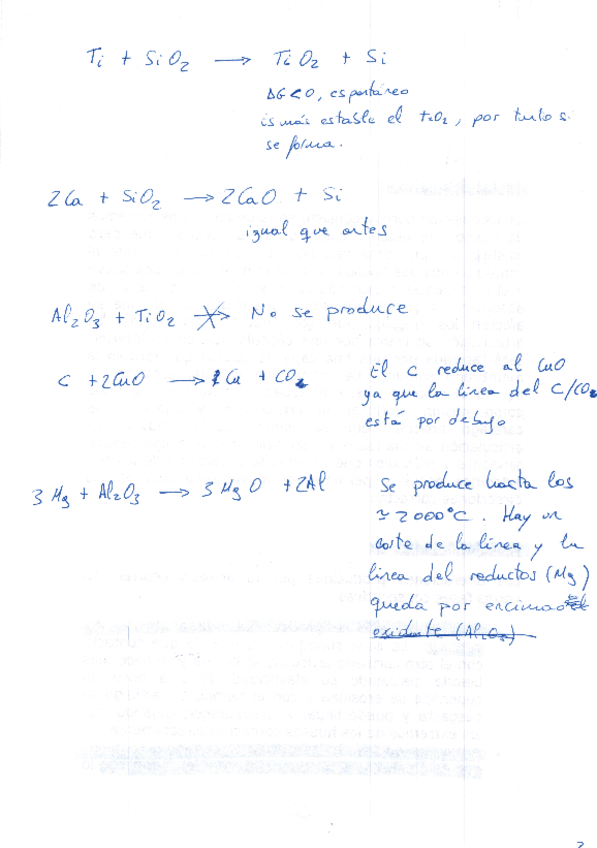 Ti + SiO₂ → TiO₂ + Si
ΔG<0, espontáneo
es más estable el TiO₂, por tanto si
se forma.
2Ca + SiO₂ → 2CaO + Si
igual que antes
Al₂O₃ + TiO₂ ↛ No se produce
C + 2CuO → 2Cu + CO₂
El C reduce al CuO
ya que la linea del C/CO₂
está por debajo
3Mg + Al₂O₃ → 3MgO + 2Al
Se produce hasta los
≃ 2000°C. Hay un
corte de la linea y la
linea del reductor (Mg)
queda por encima
oxidante (Al₂O₃)
2